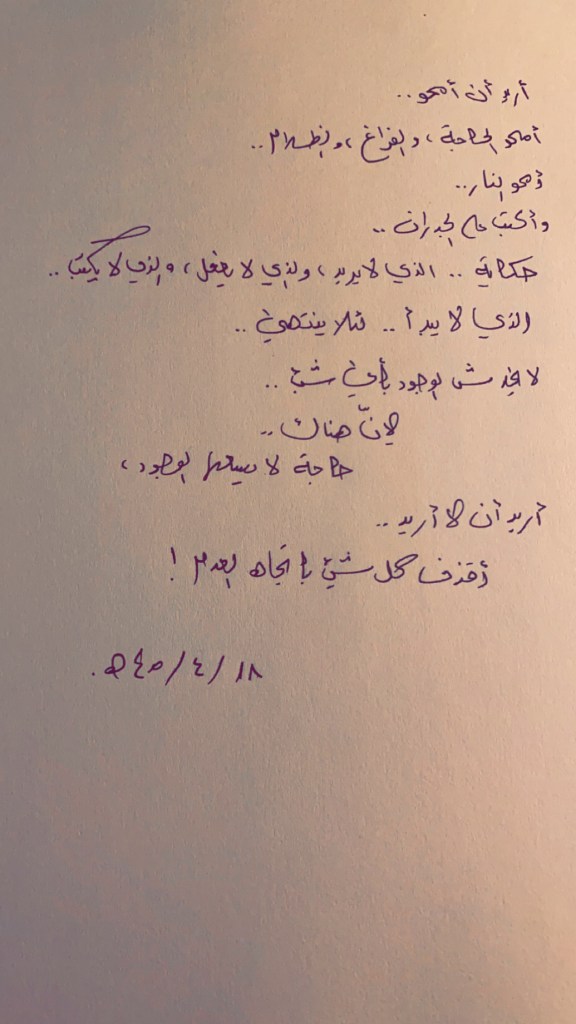 أريد أن أمحو..
أمحو الحاجة، والفراغ، والظلام..
أمحو النار..
وأكتب على الجدران..
حكاية .. الذي لا يريد، والذي لا يفعل، والذي لا يكتب..
الذي لا يبدأ .. فلا ينتهي ..
لا يخدش الوجود بأي شيء ..
لأنّ هناك ..
حاجة لا الوجود،
أريد أن لا أريد ..
أقذف كل شيء باتجاه العدم !
١٨/٤/